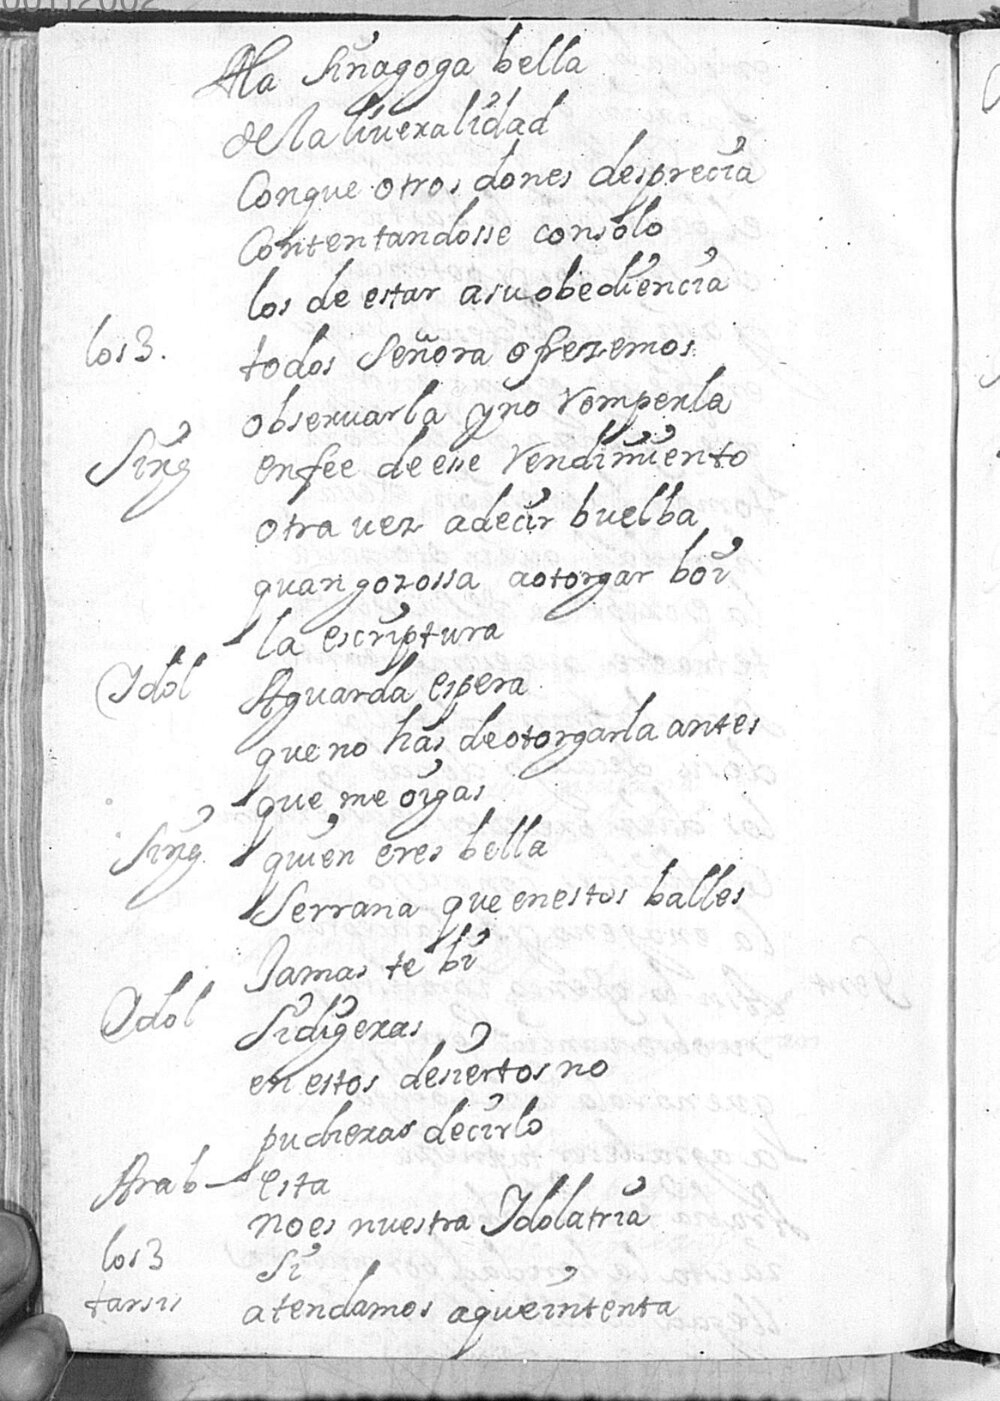 Ala Sinagoga bella
de la liueralidad
Conque otros dones desprecia
Contentandosse consolo
los de estar asu obediencia
los 3. todos Señora ofrezemos
obseruarla yno Romperla
Sing enfee de esse Rendimiento
otra uez adecir buelba
quan gozossa aotorgar boi
la escriptura
Idol Aguarda espera
que no has deotorgarla antes
que me oigas
Sing. quien eres bella
Serrana que enestos balles
Jamas te bi
Idol Sidigeras
en estos desiertos no
pudieras decirlo
Arab esta
noes nuestra Idolatria
los 3 Si
tarsis atendamos aqueintenta